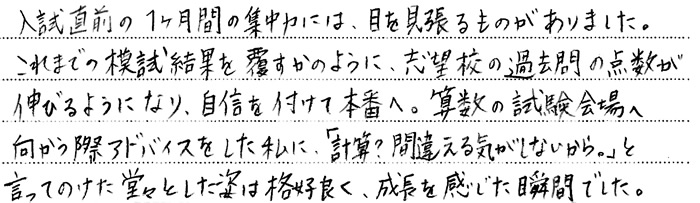 入試直前の1ヶ月間の集中力には、目を見張るものがありました。
これまでの模試結果を覆すかのように、志望校の過去問の点数が
伸びるようになり、自信を付けて本番へ。算数の試験会場へ
向かう際アドバイスをした私に、「計算?間違える気がしないから。」と
言ってのけた堂々とした姿は格好良く、成長を感じた瞬間でした。